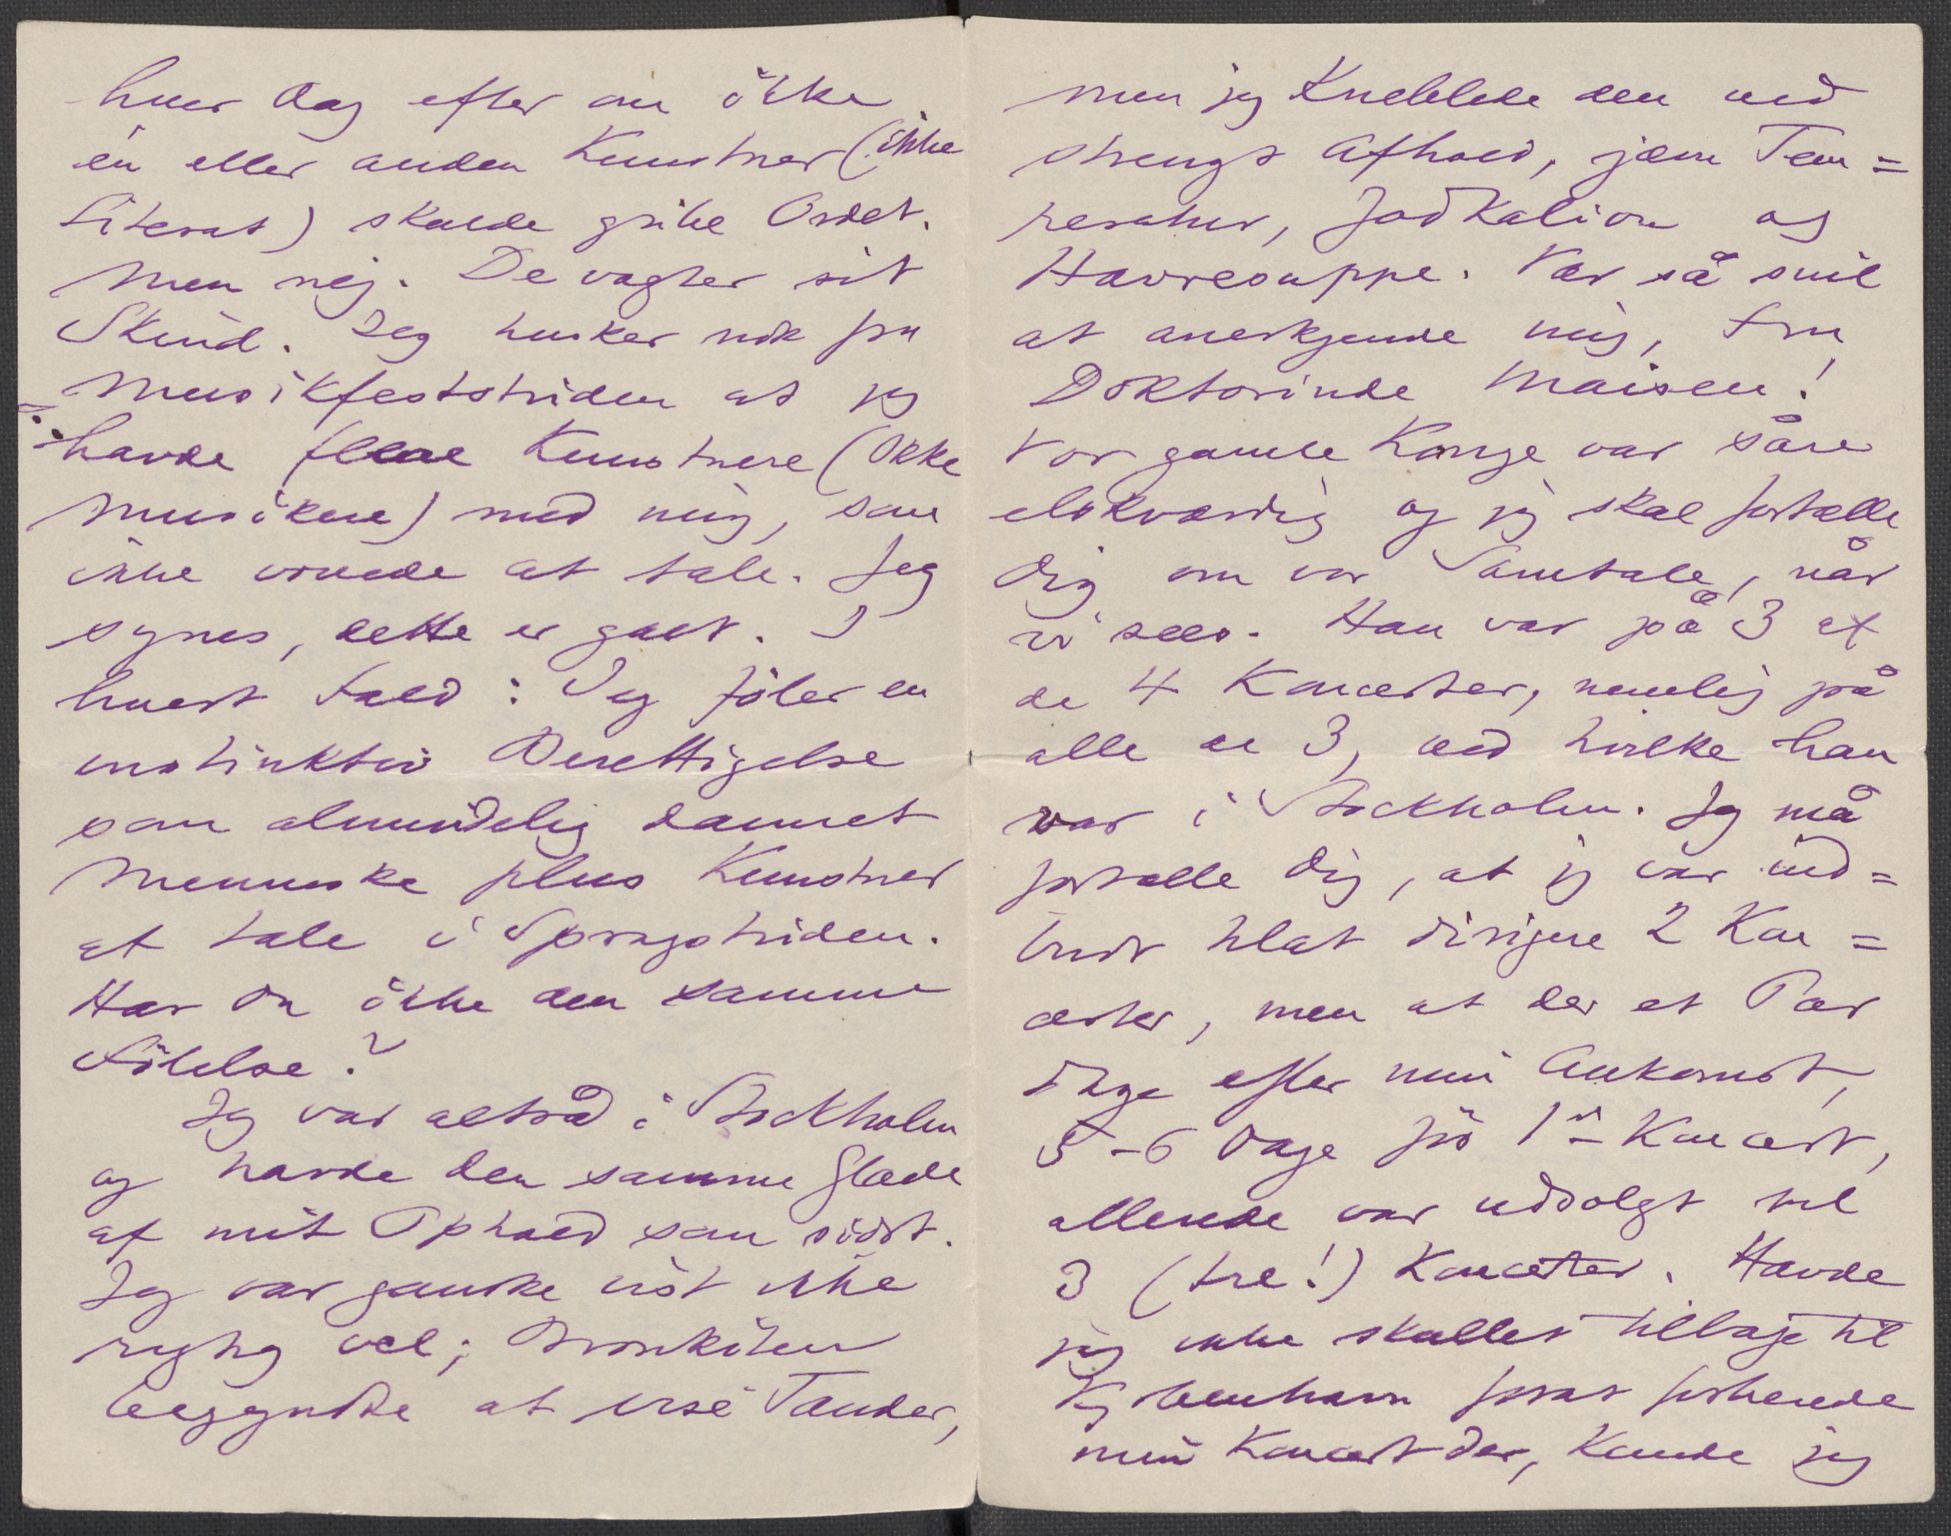 hver Dag efter om ikke
én eller anden Kunstner (ikke
Literat) skulde gribe Ordet.
Men nej. De vogter sit
Skind. Jeg husker nok fra
Musikfeststriden at jeg
havde flere Kunstnere (ikke
Musikere) med mig, som
ikke vovede at tale. Jeg
synes, dette er galt. I
hvert Fald: Jeg føler en
instinktiv Berettigelse
som almindelig dannet
Menneske plus Kunstner
at tale i Sprogstriden.
Har Du ikke den samme
Følelse?
Jeg var altså i Stockholm
og havde den samme Glæde
af mit Ophold som sidst.
Jeg var ganske vist ikke
rigtig vel; Bronkiten
begyndte at vise Tænder,
men jeg Kneblede den ved
strengt Afhold, jævn Tem=
peratur, Jodkalium og
Havresuppe. Vær så snil
at anerkjende mig, Fru
Doktorinde Maisen!
Vor gamle Konge var såre
elskværdig og jeg skal fortælle
Dig om vor Samtale, når
vi sees. Han var på 3 af
de 4 Koncerter, nemlig på
alle de 3, ved hvilke han
var i Stockholm. Jeg må
fortælle Dig, at jeg var ind=
budt til at dirigere 2 Kon=
certer, men at der et Par
Dage efter min Ankomst,
5-6 Dage før 1ste Koncert,
allerede var udsolgt til
3 (tre!) Koncerter. Havde
jeg ikke skullet tilbage til
Kjøbenhavn forat forberede
min Koncert der, Kunde jeg